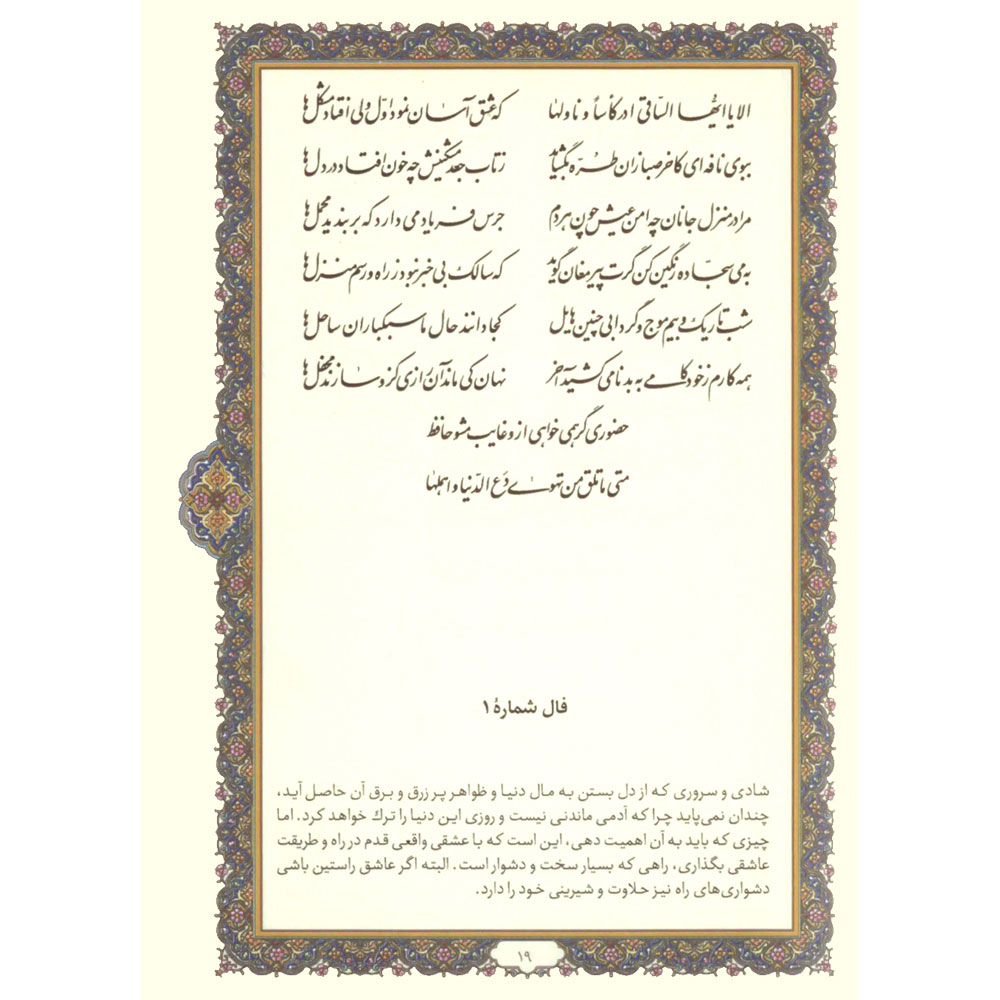 الا یا ایّها السّاقی ادر کأساً و ناولها که عشق آسان نمود اوّل ولی افتاد مشکل‌ها
ببوی نافه‌ای کاخر صبا زان طرّه بگشاید زتاب جعد مشکینش چه خون افتاد در دل‌ها
مرا در منزل جانان چه امن عیش چون هر دم جرس فریاد می‌دارد که بربندید محمل‌ها
به می سجّاده رنگین کن گرت پیر مغان گوید که سالک بی‌خبر نبود ز راه و رسم منزل‌ها
شب تاریک و بیم موج و گردابی چنین هایل کجا دانند حال ما سبکباران ساحل‌ها
همه کارم ز خود کامی به بدنامی کشید آخر نهان کی ماند آن رازی کزو سازند محفل‌ها
حضوری گر همی خواهی ازو غایب مشو حافظ
متی ما تلق من تهوی دَع الدّنیا و اهملها
فال شمارهٔ ۱
شادی و سروری که از دل بستن به مال دنیا و ظواهر پر زرق و برق آن حاصل آید،
چندان نمی‌پاید چرا که آدمی ماندنی نیست و روزی این دنیا را ترك خواهد کرد. اما
چیزی که باید به آن اهمیت دهی، این است که با عشقی واقعی قدم در راه و طریقت
عاشقی بگذاری، راهی که بسیار سخت و دشوار است. البته اگر عاشق راستین باشی
دشواری‌های راه نیز حلاوت و شیرینی خود را دارد.
۱۹